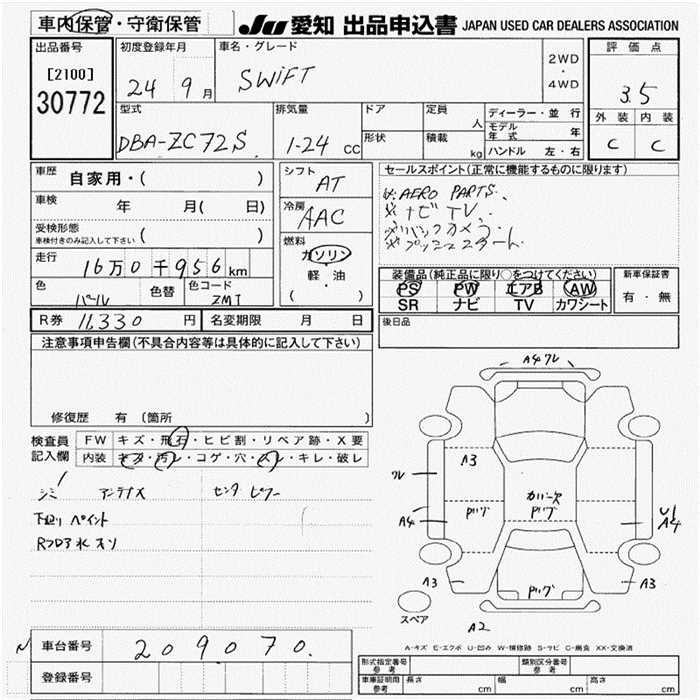 車内保管・守衛保管
JU 愛知 出品申込書 JAPAN USED CAR DEALERS ASSOCIATION
出品番号
[2100]
30772
初度登録年月
24 9月
車名・グレード
SWIFT
2WD
・
4WD
評価点
3.5
外装 内装
C C
型式
DBA-ZC72S
排気量
1-24 cc
ドア
形状
定員 人
積載 kg
ディーラー・並行
モデル年式 年
ハンドル 左・右
車歴 自家用・( )
車検 年 月( 日)
受検形態
車検付きのみ記入して下さい ( )
走行
16万0千956km
色
パール
色替
色コード
ZMT
シフト
AT
冷房
AAC
燃料
ガソリン
軽・油
( )
セールスポイント(正常に機能するものに限ります)
※AERO PARTS.
※ナビ TV.
※バックカメラ.
※プッシュスタート
装備品(純正品に限り○をつけてください)
PS PW エアB AW
SR ナビ TV カワシート
新車保証書
有・無
R券 11,330 円 名変期限 月 日
後日品
注意事項申告欄(不具合内容等は具体的に記入して下さい)
修復歴 有(箇所 )
検査員記入欄
FW キズ・飛石・ヒビ割・リペア跡・X要
内装 キズ・汚レ・コゲ・穴・スレ・キレ・破レ
シミ アンテナX
下廻り ペイント
Rフロア水
A4ワレ
A3
ワレ
A4
Pリブ
カバー欠
Pリブ
U1
A4
A3
Pリブ
A3
スペア
A2
A-キズ E-エクボ U-凹み W-補修跡 S-サビ C-腐食 XX-交換済
車台番号 209070
登録番号
形式指定番号
参考
類別区分番号
参考
車庫証明用
参考
長さ cm 幅 cm 高さ cm